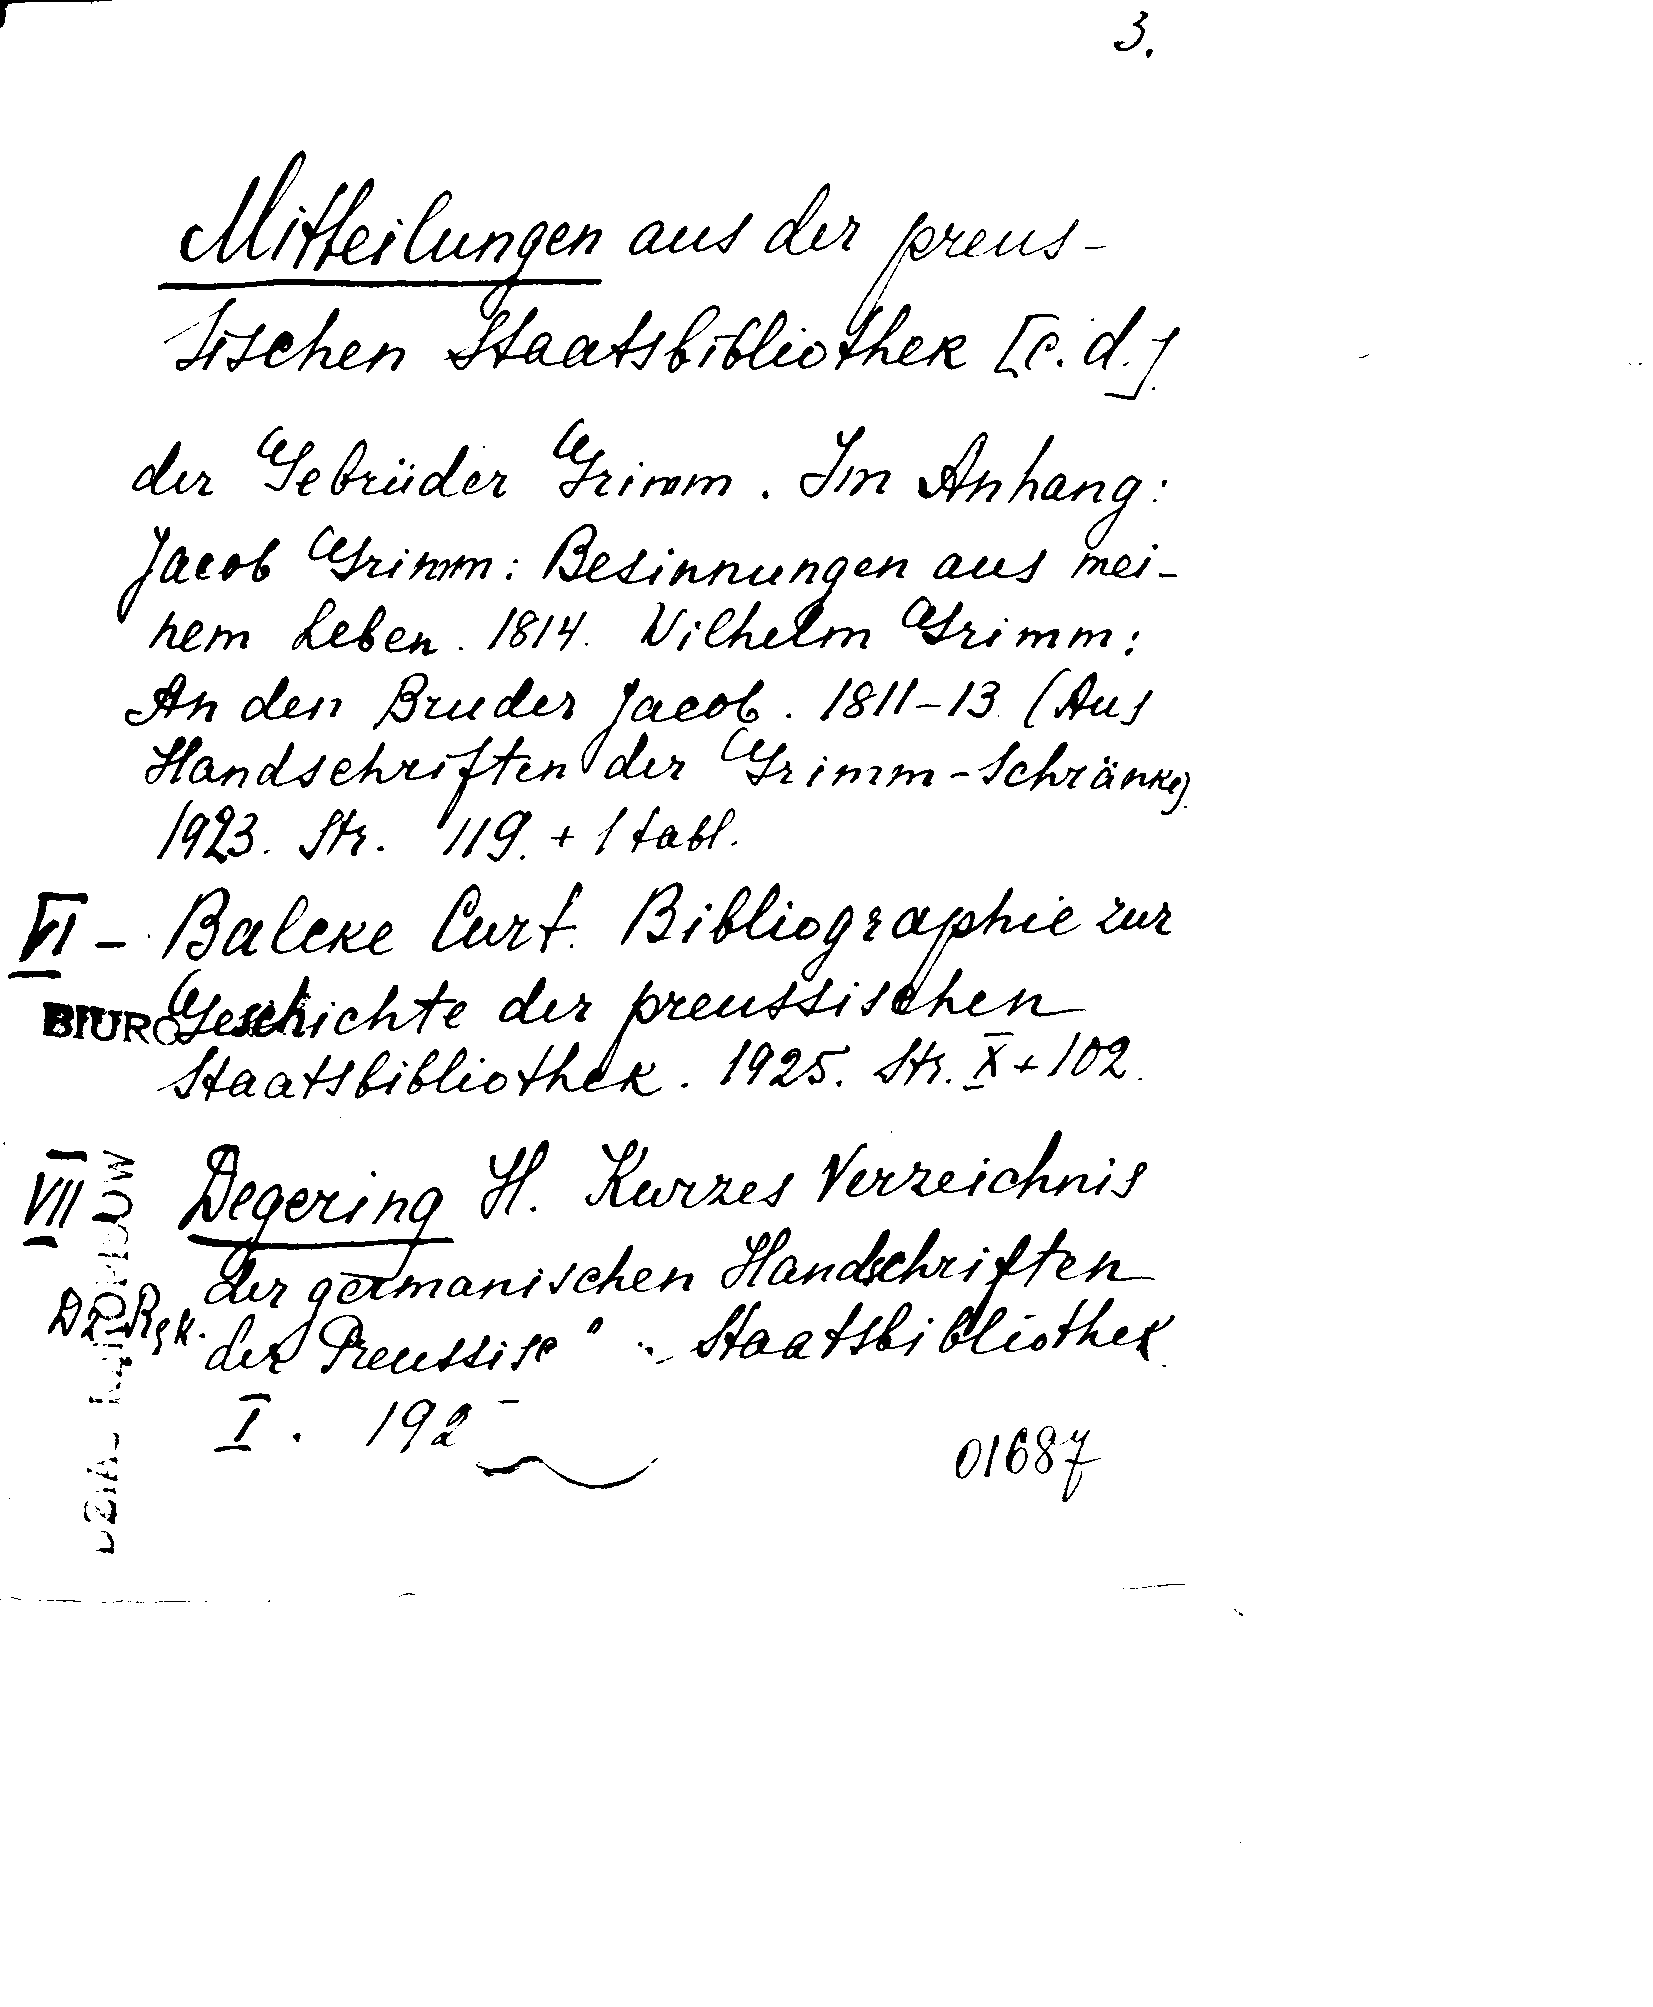 3.
Mitteilungen aus der preus-
sischen Staatsbibliothek [c.d.]
der Gebrüder Grimm. Im Anhang:
Jacob Grimm: Besinnungen aus mei-
nem Leben. 1814. Wilhelm Grimm:
An den Bruder Jacob. 1811-13 (Aus
Handschriften der Grimm-Schränke)
1923. Str. 119. + 1 tabl.
VI - Balcke Curt. Bibliographie zur
BIURO Geschichte der preussischen
Staatsbibliothek. 1925. Str. X + 102.
VII Degering H. Kurzes Verzeichnis
der germanischen Handschriften
Dz. Rgk. der Preussisc Staatsbibliothek
I. 192
01687